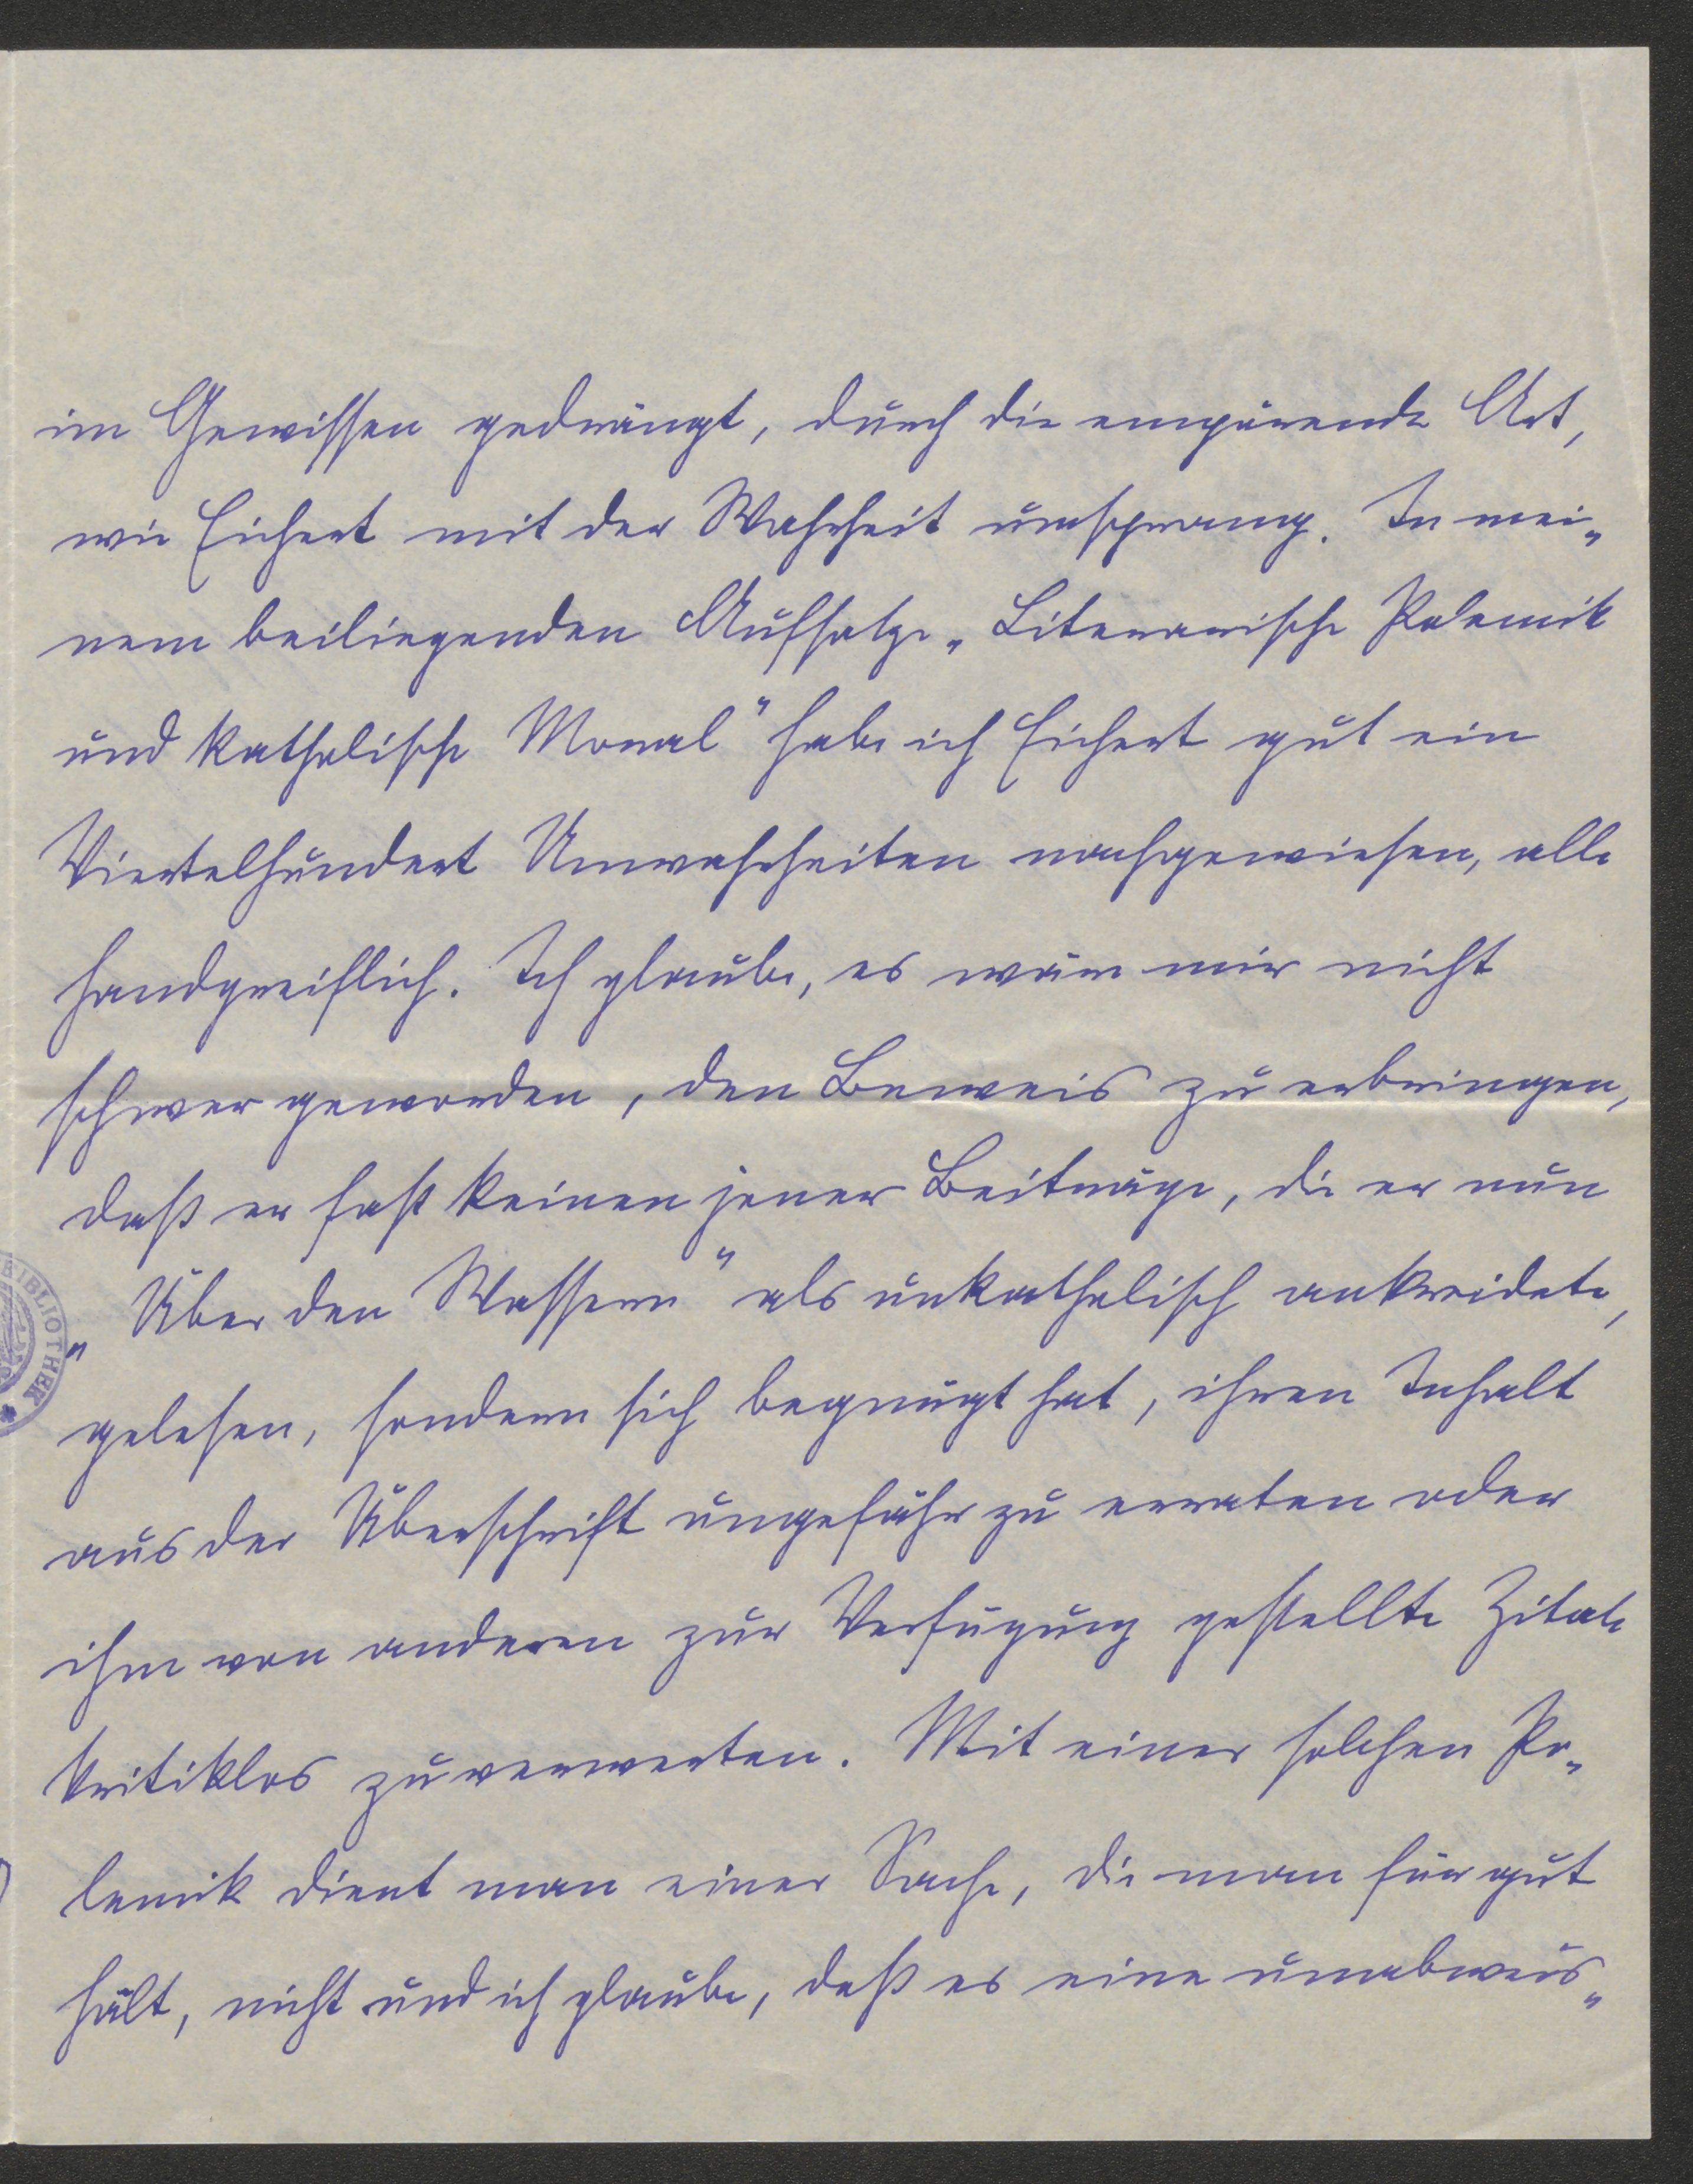 im Gewissen gedrängt, durch die empörende Art,
wie Eichert mit der Wahrheit umsprang. In mei„
nem beiliegenden Aufsatze „Literarische Polemik
und katholische Moral" habe ich Eichert gut ein
Viertelhundert Unwahrheiten nachgewiesen, alle
handgreiflich. Ich glaube, es wäre mir nicht
schwer geworden, den Beweis zu erbringen,
daß er fast keinen jener Beiträge, die er nun
„Über den Wassern" als unkatholisch ankreidete,
gelesen, sondern sich begnügt hat, ihren Inhalt
aus der Überschrift ungefähr zu erraten oder
ihm von anderen zur Verfügung gestellte Zitate
kritiklos zu verwerten. Mit einer solchen Po„
lemik dient man einer Sache, die man für gut
hält, nicht und ich glaube, daß es eine unabweis„
BIBLIOTHEK